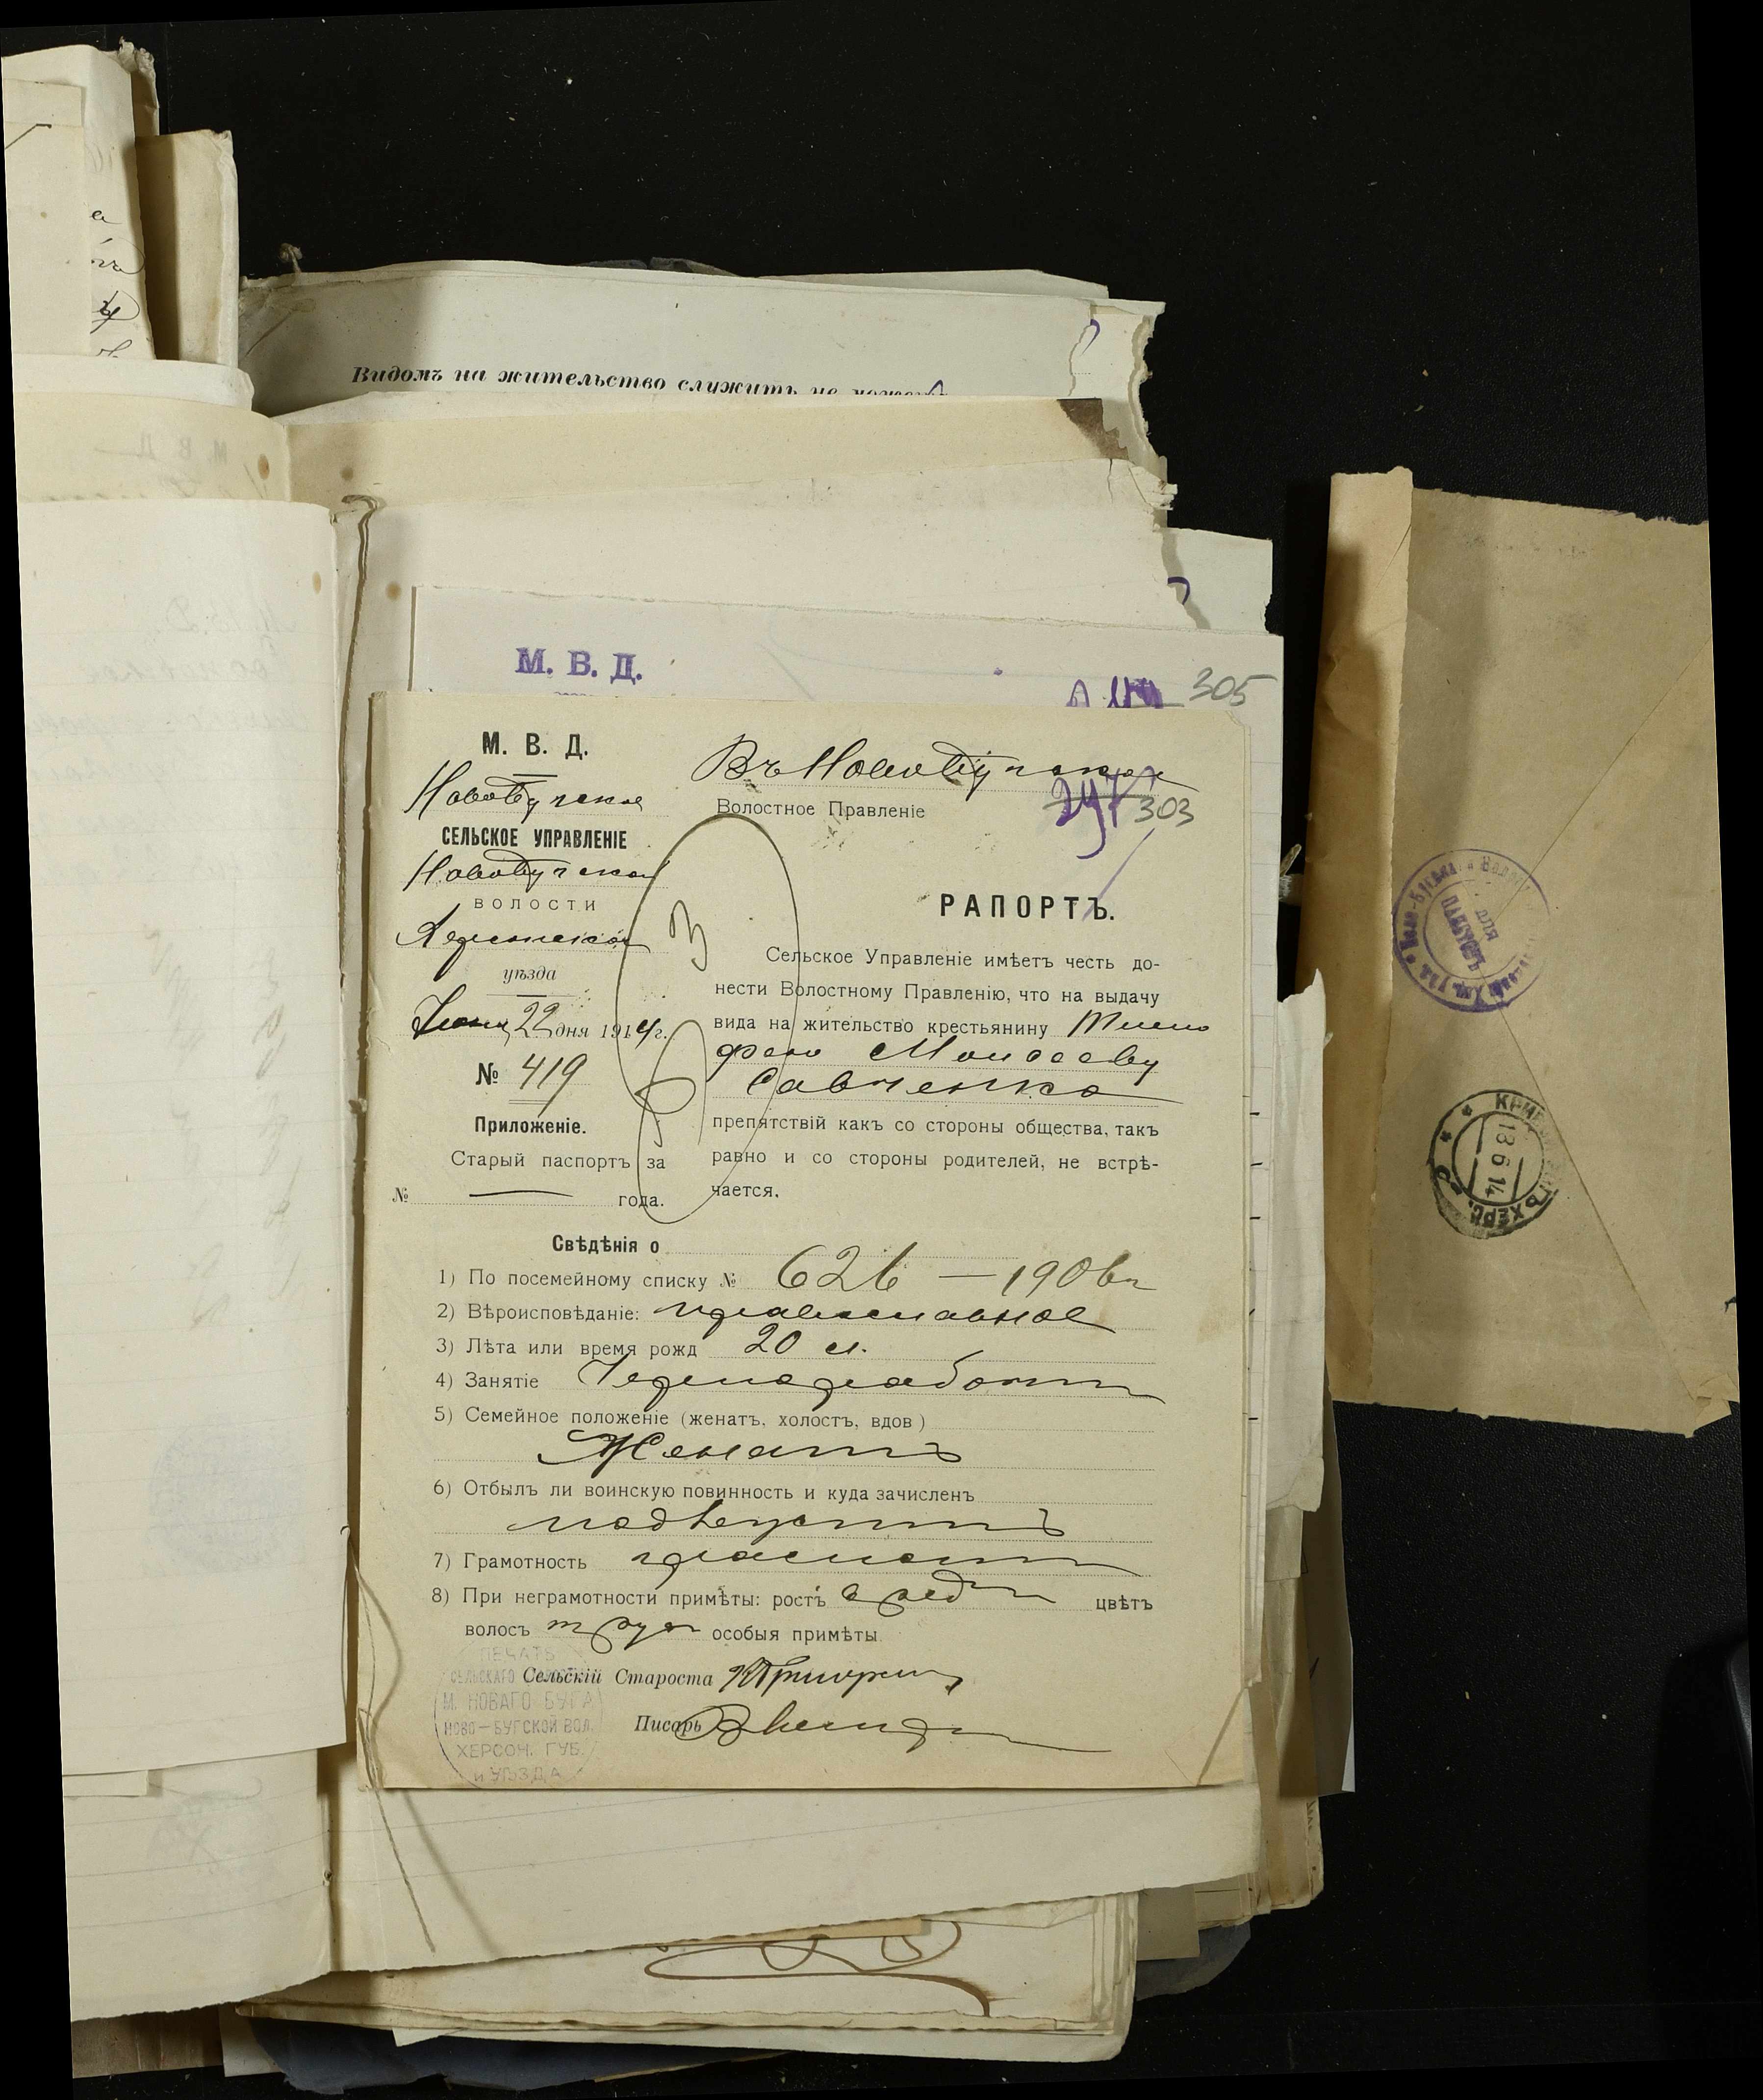 Видомъ на жительство служить не можетъ
М. В. Д.
305
М. В. Д.
Новобугское
СЕЛЬСКОЕ УПРАВЛЕНІЕ
Новобугской
ВОЛОСТИ
Херсонскаго
уѣзда
Іюня 22 дня 1914 г.
№ 419
Приложеніе.
Старый паспортъ за
№ — года.
Въ Новобугское
Волостное Правленіе
297 303
РАПОРТЪ.
Сельское Управленіе имѣетъ честь до-
нести Волостному Правленію, что на выдачу
вида на жительство крестьянину Тимо
фею Моисееву
Савченко
препятствій какъ со стороны общества, такъ
равно и со стороны родителей, не встрѣ-
чается.
Свѣдѣнія о
1) По посемейному списку № 626 — 1906 г
2) Вѣроисповѣданіе: православное
3) Лѣта или время рожд 20 л.
4) Занятіе Чернорабоч
5) Семейное положеніе (женатъ, холостъ, вдов )
Женатъ
6) Отбылъ ли воинскую повинность и куда зачисленъ
подлежитъ
7) Грамотность грамотн
8) При неграмотности примѣты: ростъ средн цвѣтъ
волосъ т рус особыя примѣты
Сельскій Староста
Писарь
ПЕЧАТЬ
СЕЛЬСКАГО СТАРОСТЫ
М. НОВАГО БУГА
НОВО-БУГСКОЙ ВОЛ.
ХЕРСОН. ГУБ.
и УѢЗДА
ХЕРС.
18 6 14